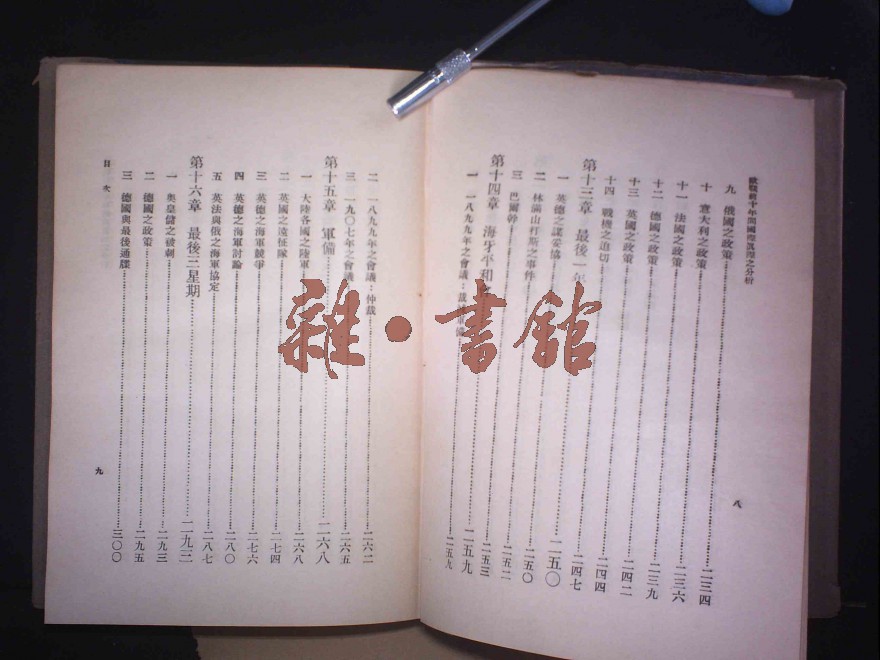 歐戰前十年間國際眞理之分析
八
九 俄國之政策 二三四
十 意大利之政策 二三六
十一 法國之政策 二三九
十二 德國之政策 二四二
十三 英國之政策 二四四
十四 戰機之迫切 二四七
第十三章 最後一年 二五〇
一 英德之謀妥協 二五〇
二 林滿山打斯之事件 二五二
三 巴爾幹 二五三
第十四章 海牙平和 二五九
一 一八九九年之會議： 二五九
二 一八九九年之會議：仲裁 二六二
三 一九〇七年之會議 二六五
第十五章 軍備 二六八
一 大陸各國之陸軍 二六八
二 英國之遠征隊 二七四
三 英德之海軍競爭 二七六
四 英德之海軍討論 二八〇
五 英法與俄之海軍協定 二八七
第十六章 最後三星期 二九三
一 奧皇儲之被刺 二九三
二 德國之政策 二九五
三 德國與最後通牒 三〇〇
目次
九
雜·書館